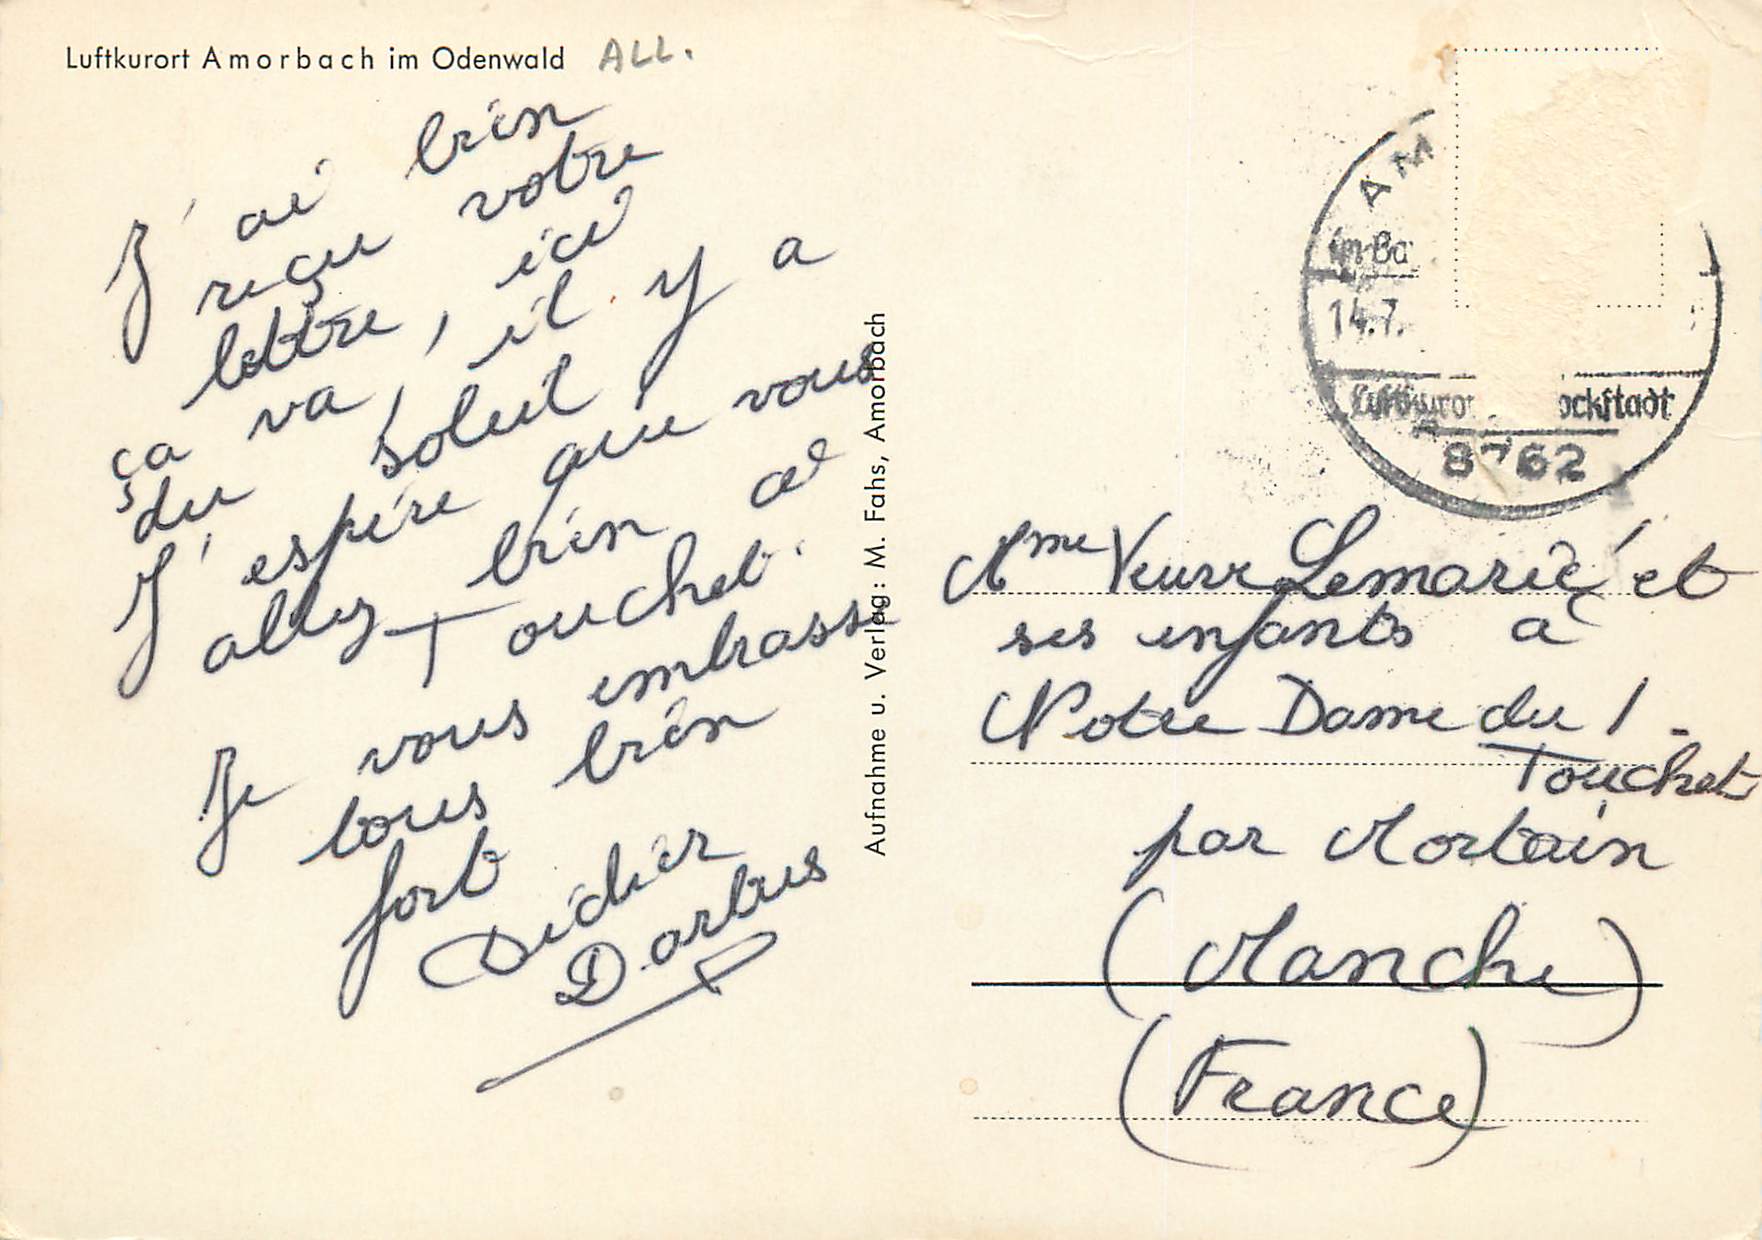 Luftkurort Amorbach im Odenwald ALL.
J'ai bien
reçu votre
lettre, ici
ça va, il y a
du soleil,
J'espére que vous
allez bien a
Touchet.
Je vous embrasse
tous bien
fort
Didier
Dorbus
Aufnahme u. Verlag: M. Fahs, Amorbach
AM
14.7.
Luftkuror ockstadt
8762
Mme Veuve Lemarié et
ses enfants à
Notre Dame du
Touchet
par Mortain
(Manche)
(France)